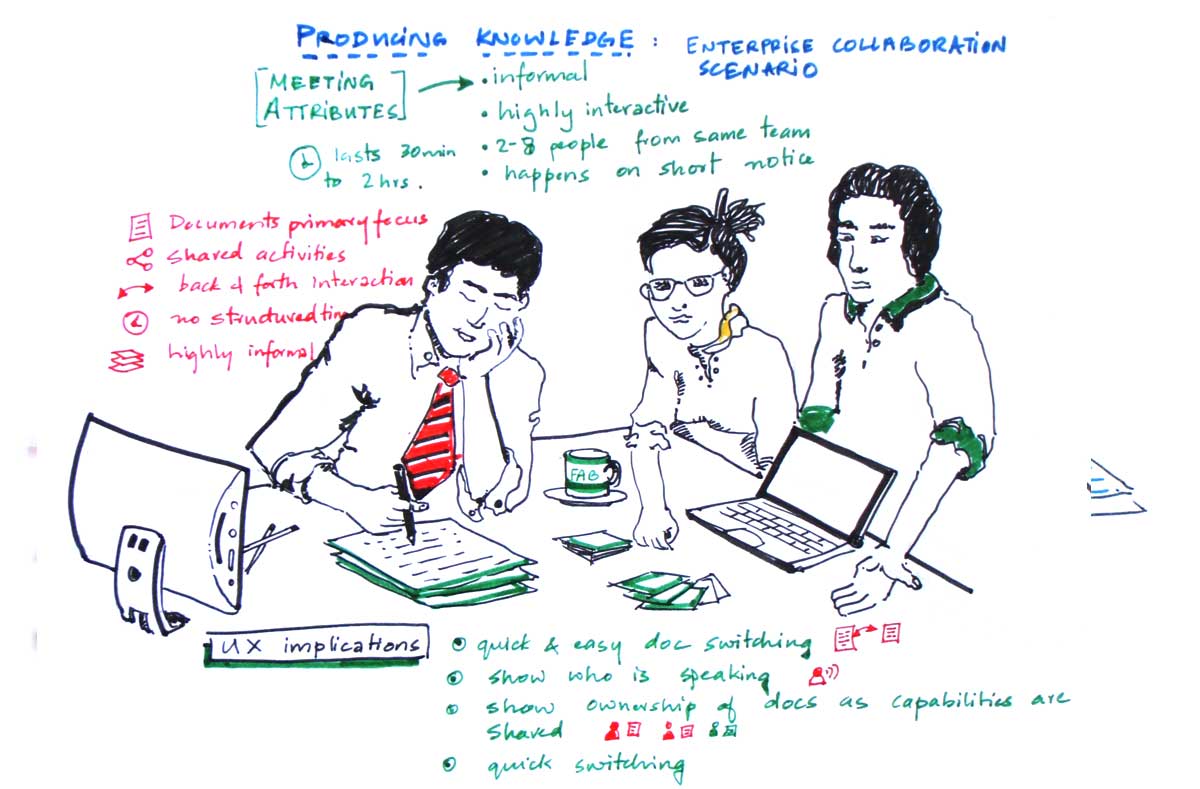 PRODUCING KNOWLEDGE : ENTERPRISE COLLABORATION
SCENARIO
[MEETING
ATTRIBUTES]
• informal
• highly interactive
• 2-8 people from same team
• happens on short notice
lasts 30min
to 2hrs.
Documents primary focus
shared activities
back & forth interaction
no structured tim
highly informal
FAB
UX implications
quick & easy doc switching
show who is speaking
show ownership of docs as capabilities are
shared
quick switching